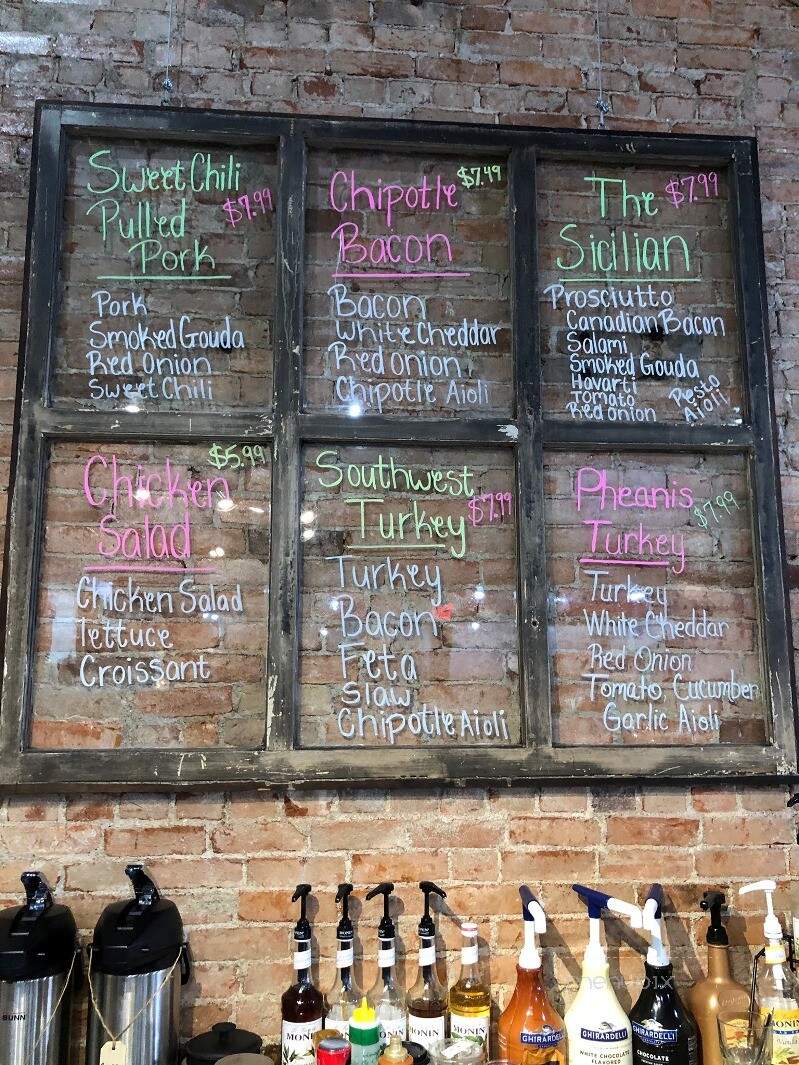 Sweet Chili
Pulled $7.99
Pork
Pork
Smoked Gouda
Red Onion
Sweet Chili
Chipotle $7.49
Bacon
Bacon
White Cheddar
Red Onion
Chipotle Aioli
The $7.99
Sicilian
Prosciutto
Canadian Bacon
Salami
Smoked Gouda
Havarti
Tomato
Red Onion
Pesto
Aioli
Chicken $5.99
Salad
Chicken Salad
Lettuce
Croissant
Southwest
Turkey $7.99
Turkey
Bacon
Feta
Slaw
Chipotle Aioli
Pheanis
Turkey $7.99
Turkey
White Cheddar
Red Onion
Tomato Cucumber
Garlic Aioli
BUNN
MONIN
MONIN
MONIN
MONIN
GHIRARDELLI
GHIRARDELLI
WHITE CHOCOLATE
FLAVORED
GHIRARDELLI
CHOCOLATE
MONIN